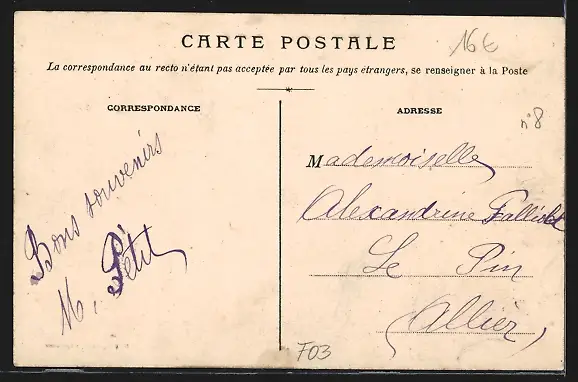 CARTE POSTALE
16€
La correspondance au recto n'étant pas acceptée par tous les pays étrangers, se renseigner à la Poste
CORRESPONDANCE
Bons souvenirs
M. Petit
ADRESSE
n°8
Mademoiselle
Alexandrine
Le Pin
(Allier)
F03